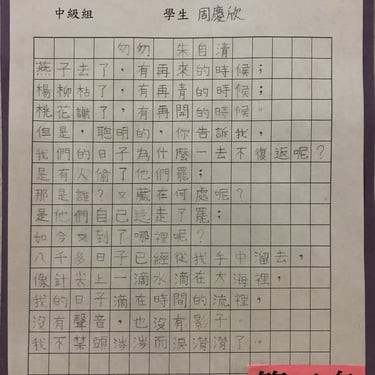 中級組 學生 周慶欣
匆匆 朱自清
燕子去了，有再來的時候；
楊柳枯了，有再青的時候；
桃花謝了，有再開的時候。
但是，聰明的，你告訴我，
我們的日子為什麼一去不復返呢？
是有人偷了他們罷；
那是誰？又藏在何處呢？
是他們自己逃走了罷；
如今又到了哪裡呢？
八千多日子已經從我手中溜去，
像針尖上一滴水滴在大海裡，
我的日子滴在時間的流裡，
沒有聲音，也沒有影子。
我不禁頭涔涔而淚潸潸了。